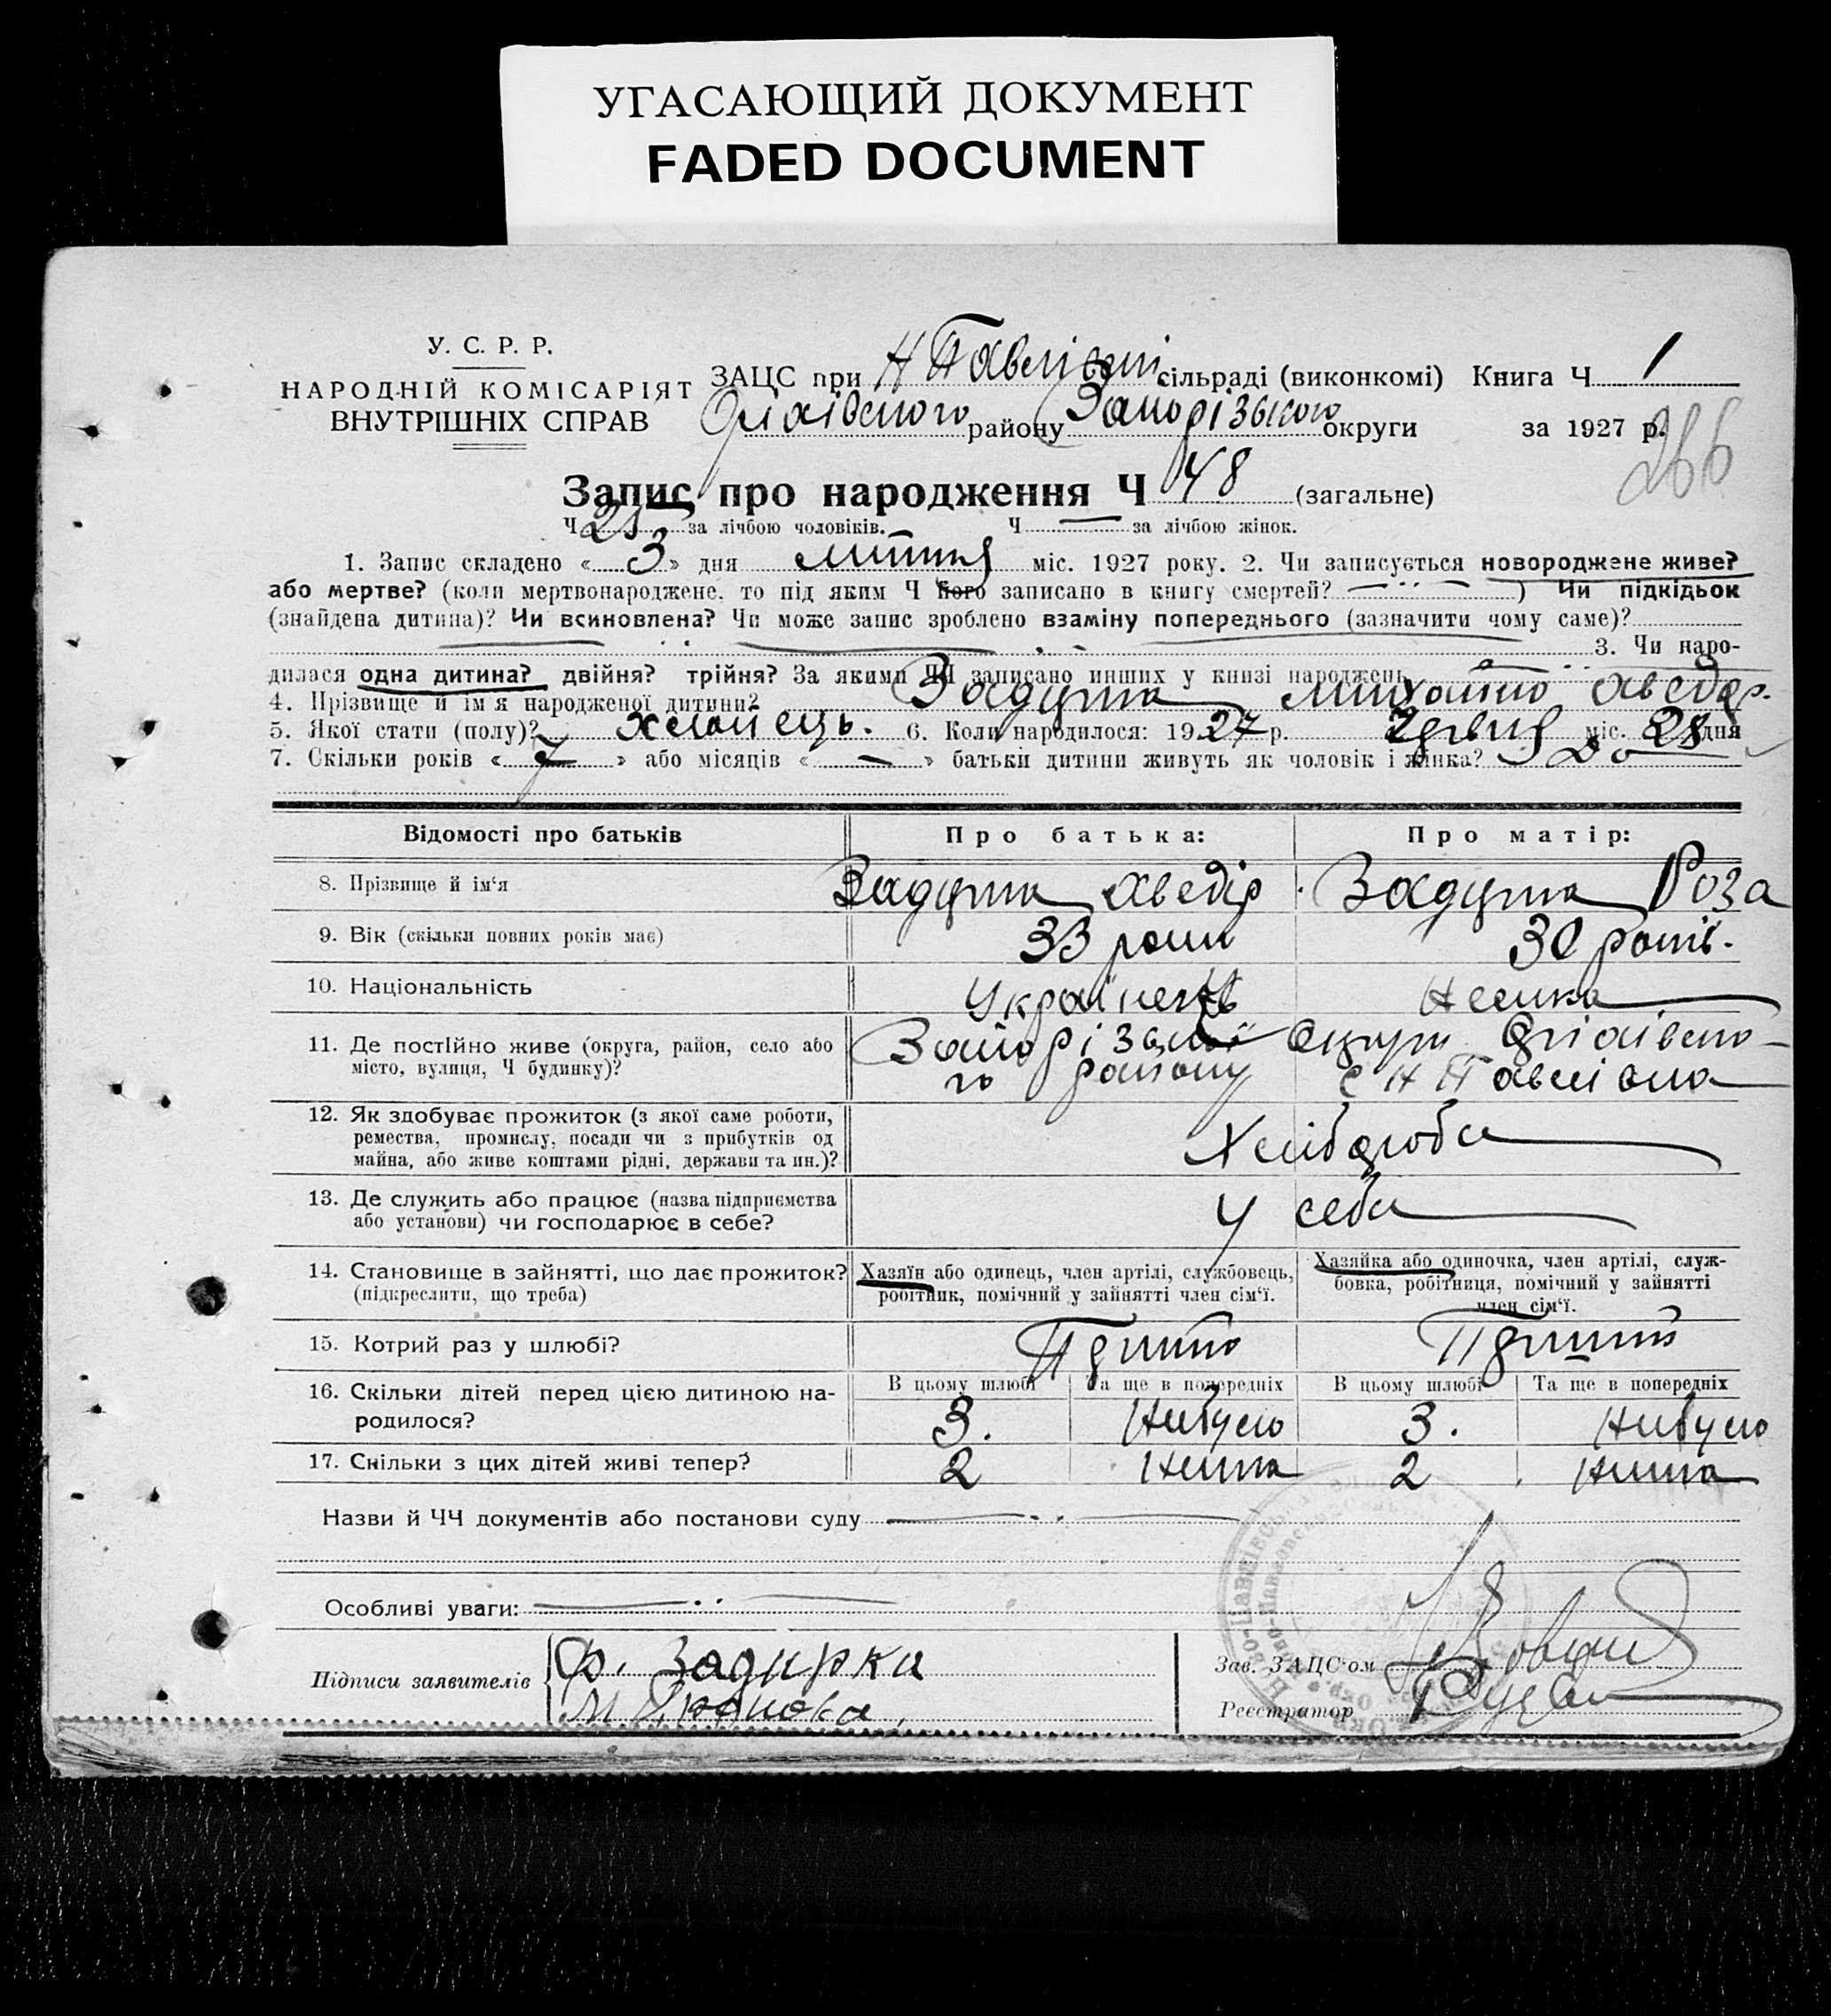 УГАСАЮЩИЙ ДОКУМЕНТ
FADED DOCUMENT
У. С. Р. Р.
НАРОДНІЙ КОМІСАРІЯТ
ВНУТРІШНІХ СПРАВ
ЗАЦС при Н Павлівці сільраді (виконкомі) Книга Ч 1
Оріхівського району Запорізького округи за 1927 р.
266
Запис про народження Ч 48 (загальне)
Ч за лічбою чоловіків. Ч — за лічбою жінок.
1. Запис складено « 3 » дня липня міс. 1927 року. 2. Чи записується новороджене живе?
або мертве? (коли мертвонароджене, то під яким Ч його записано в книгу смертей? ) Чи підкідьок
(знайдена дитина)? Чи всиновлена? Чи може запис зроблено взаміну попереднього (зазначити чому саме)?
3. Чи наро-
дилася одна дитина? двійня? трійня? За якими ЧЧ записано инших у книзі народжень
4. Прізвище й ім'я народженої дитини? Задирка Михайло Хведор.
5. Якої стати (полу)? хлопець. 6. Коли народилося: 1927 р. червня міс. 28 дня
7. Скільки років « 7 » або місяців « — » батьки дитини живуть як чоловік і жінка?
Відомості про батьків Про батька: Про матір:
8. Прізвище й ім'я Задирка Хведір Задирка Роза
9. Вік (скільки повних років має) 33 роки 30 років.
10. Національність Українець Немка
11. Де постійно живе (округа, район, село або Запорізької округи Оріхівсько-
місто, вулиця, Ч будинку)? го району с Н Павлівка
12. Як здобуває прожиток (з якої саме роботи,
ремества, промислу, посади чи з прибутків од
майна, або живе коштами рідні, держави та ин.)? Хлібороби
13. Де служить або працює (назва підприємства
або установи) чи господарює в себе? У себе
14. Становище в зайнятті, що дає прожиток? Хазяїн або одинець, член артілі, службовець, Хазяйка або одиночка, член артілі, служ-
(підкреслити, що треба) робітник, помічний у зайнятті член сім'ї. бовка, робітниця, помічний у зайнятті
член сім'ї.
15. Котрий раз у шлюбі?
16. Скільки дітей перед цією дитиною на- В цьому шлюбі Та ще в попередніх В цьому шлюбі Та ще в попередніх
родилося? 3. Нибуло 3. Нибуло
17. Скільки з цих дітей живі тепер? 2 Нима 2 Нима
Назви й ЧЧ документів або постанови суду
Особливі уваги:
Підписи заявителів Ф. Задирка
Зав. ЗАЦС'ом
Реєстратор